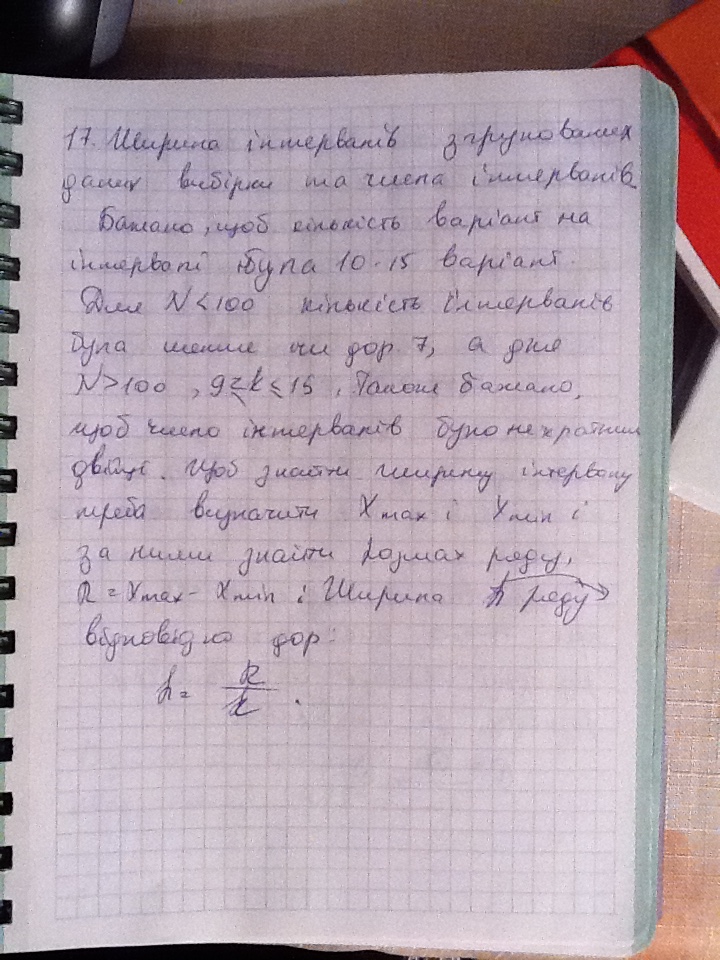 17. Ширина інтервалів згрупованих
даних вибірки та числа інтервалів
Бажано, щоб кількість варіант на
інтервалі була 10-15 варіант.
Для N < 100 кількість інтервалів
була менше чи дор 7, а для
N>100, 9≤k≤15, Також бажано,
щоб число інтервалів було не кратним
двійці. Щоб знайти ширину інтервалу
треба визначити X max і X min і
За ними знайти розмах ряду,
R = Xmax - Xmin і Ширина h ряду
відповідно дор:
h = R/k.